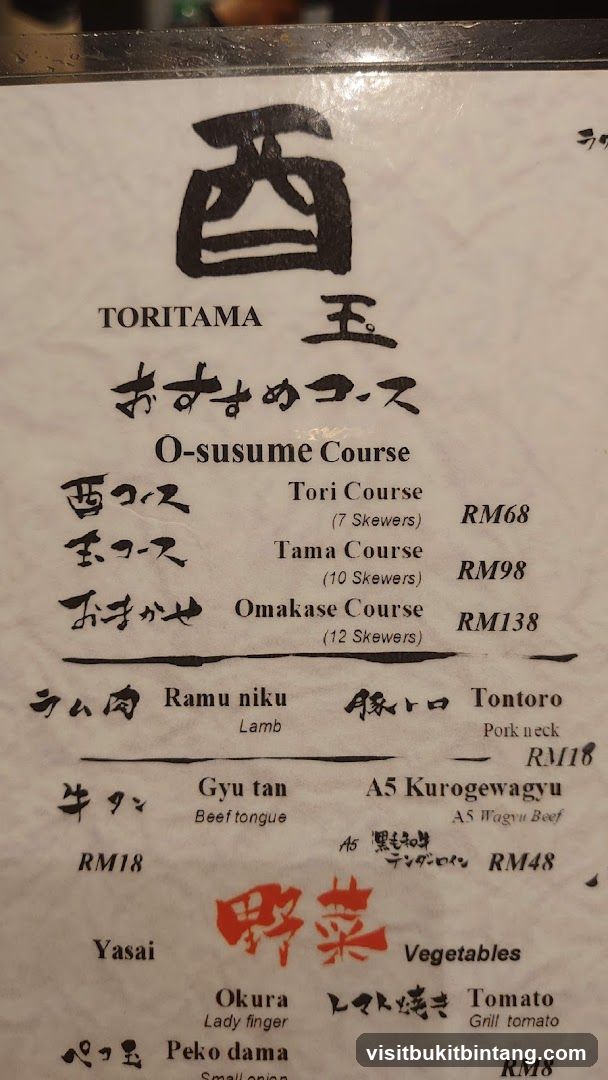 酉
TORITAMA 玉。
おすすめコース
O-susume Course
酉コース Tori Course
(7 Skewers) RM68
玉コース Tama Course
(10 Skewers) RM98
おまかせ Omakase Course RM138
(12 Skewers)
ラム肉 Ramu niku 豚トロ Tontoro
Lamb Pork neck
RM18
牛タン Gyu tan A5 Kurogewagyu
Beef tongue A5 Wagyu Beef
A5 黒毛和牛
テンダーロイン
RM18 RM48
野菜
Yasai Vegetables
Okura トマト焼き Tomato
Lady finger Grill tomato
ペコ玉 Peko dama
Small onion RM8
visitbukitbintang.com